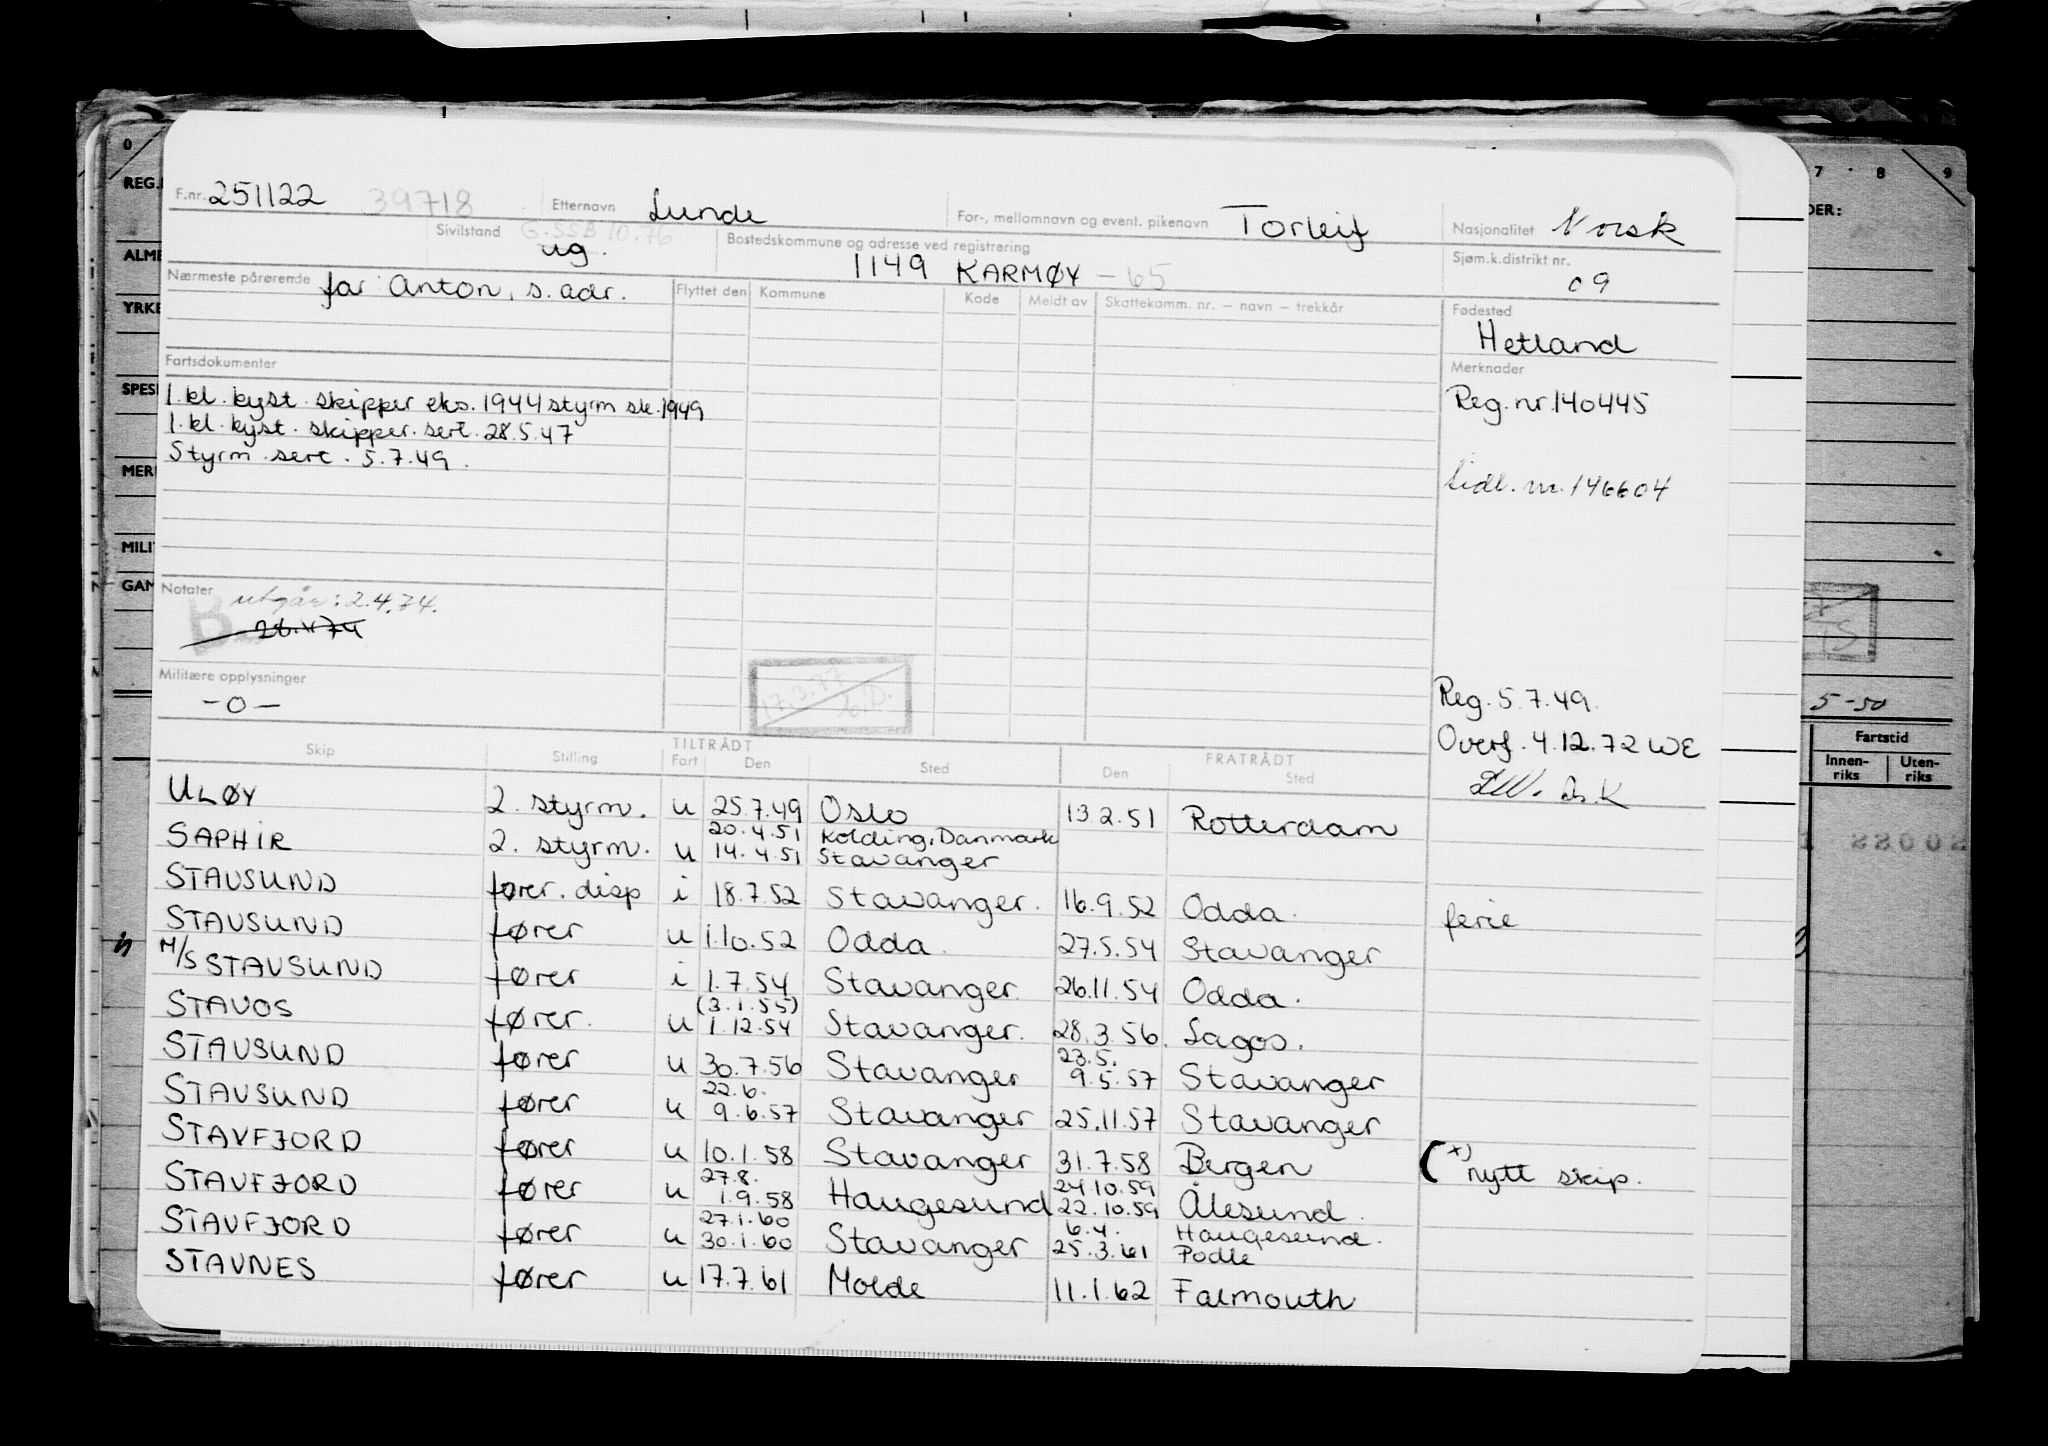 F.nr. 251122 39718 Etternavn Lunde For-, mellomnavn og event. pikenavn Torleif Nasjonalitet Norsk
Sivilstand ug. G.SSB 10.76 Bostedskommune og adresse ved registrering 1149 KARMØY - 65 Sjøm.k.distrikt nr. 09
Nærmeste pårørende far Anton, s. adr. Flyttet den Kommune Kode Meldt av Skattekomm. nr. – navn – trekkår Fødested
Hetland
Fartsdokumenter Merknader
1. kl. kyst. skipper eks. 1944 styrm sk. 1949 Reg. nr. 140445
1. kl. kyst. skipper. sert. 28.5.47
Styrm. sert. 5.7.49.
146604
Notater utgår: 2.4.74.
Militære opplysninger 17.3.77
-0- Reg. 5.7.49.
Overf. 4.12.72 WE
TILTRÅDT FRATRÅDT
Skip Stilling Fart Den Sted Den Sted
ULØY 2. styrm. u 25.7.49 Oslo 13.2.51 Rotterdam
20.4.51 Kolding, Danmark
SAPHIR 2. styrm. u 14.4.51 Stavanger
STAVSUND fører. disp i 18.7.52 Stavanger. 16.9.52 Odda. ferie
STAVSUND fører u 1.10.52 Odda. 27.5.54 Stavanger
M/S STAVSUND fører i 1.7.54 Stavanger 26.11.54 Odda.
(3.1.55)
STAVOS fører. u 1.12.54 Stavanger. 28.3.56. Lagos.
23.5.
STAVSUND fører u 30.7.56 Stavanger 9.5.57 Stavanger
22.6.
STAVSUND fører u 9.6.57 Stavanger 25.11.57 Stavanger
STAVFJORD fører u 10.1.58 Stavanger 31.7.58 Bergen (x) nytt skip.
27.8. 24.10.59
STAVFJORD fører u 1.9.58 Haugesund 22.10.59 Ålesund.
27.1.60 6.4. Haugesund.
STAVFJORD fører u 30.1.60 Stavanger 25.3.61 Podle
STAVNES fører u 17.7.61 Molde 11.1.62 Falmouth
0
REG.
ALME
YRKE
SPES
MER
MILI
GAN
7 8 9
DER:
5-50
Fartstid
Innen-riks Uten-riks